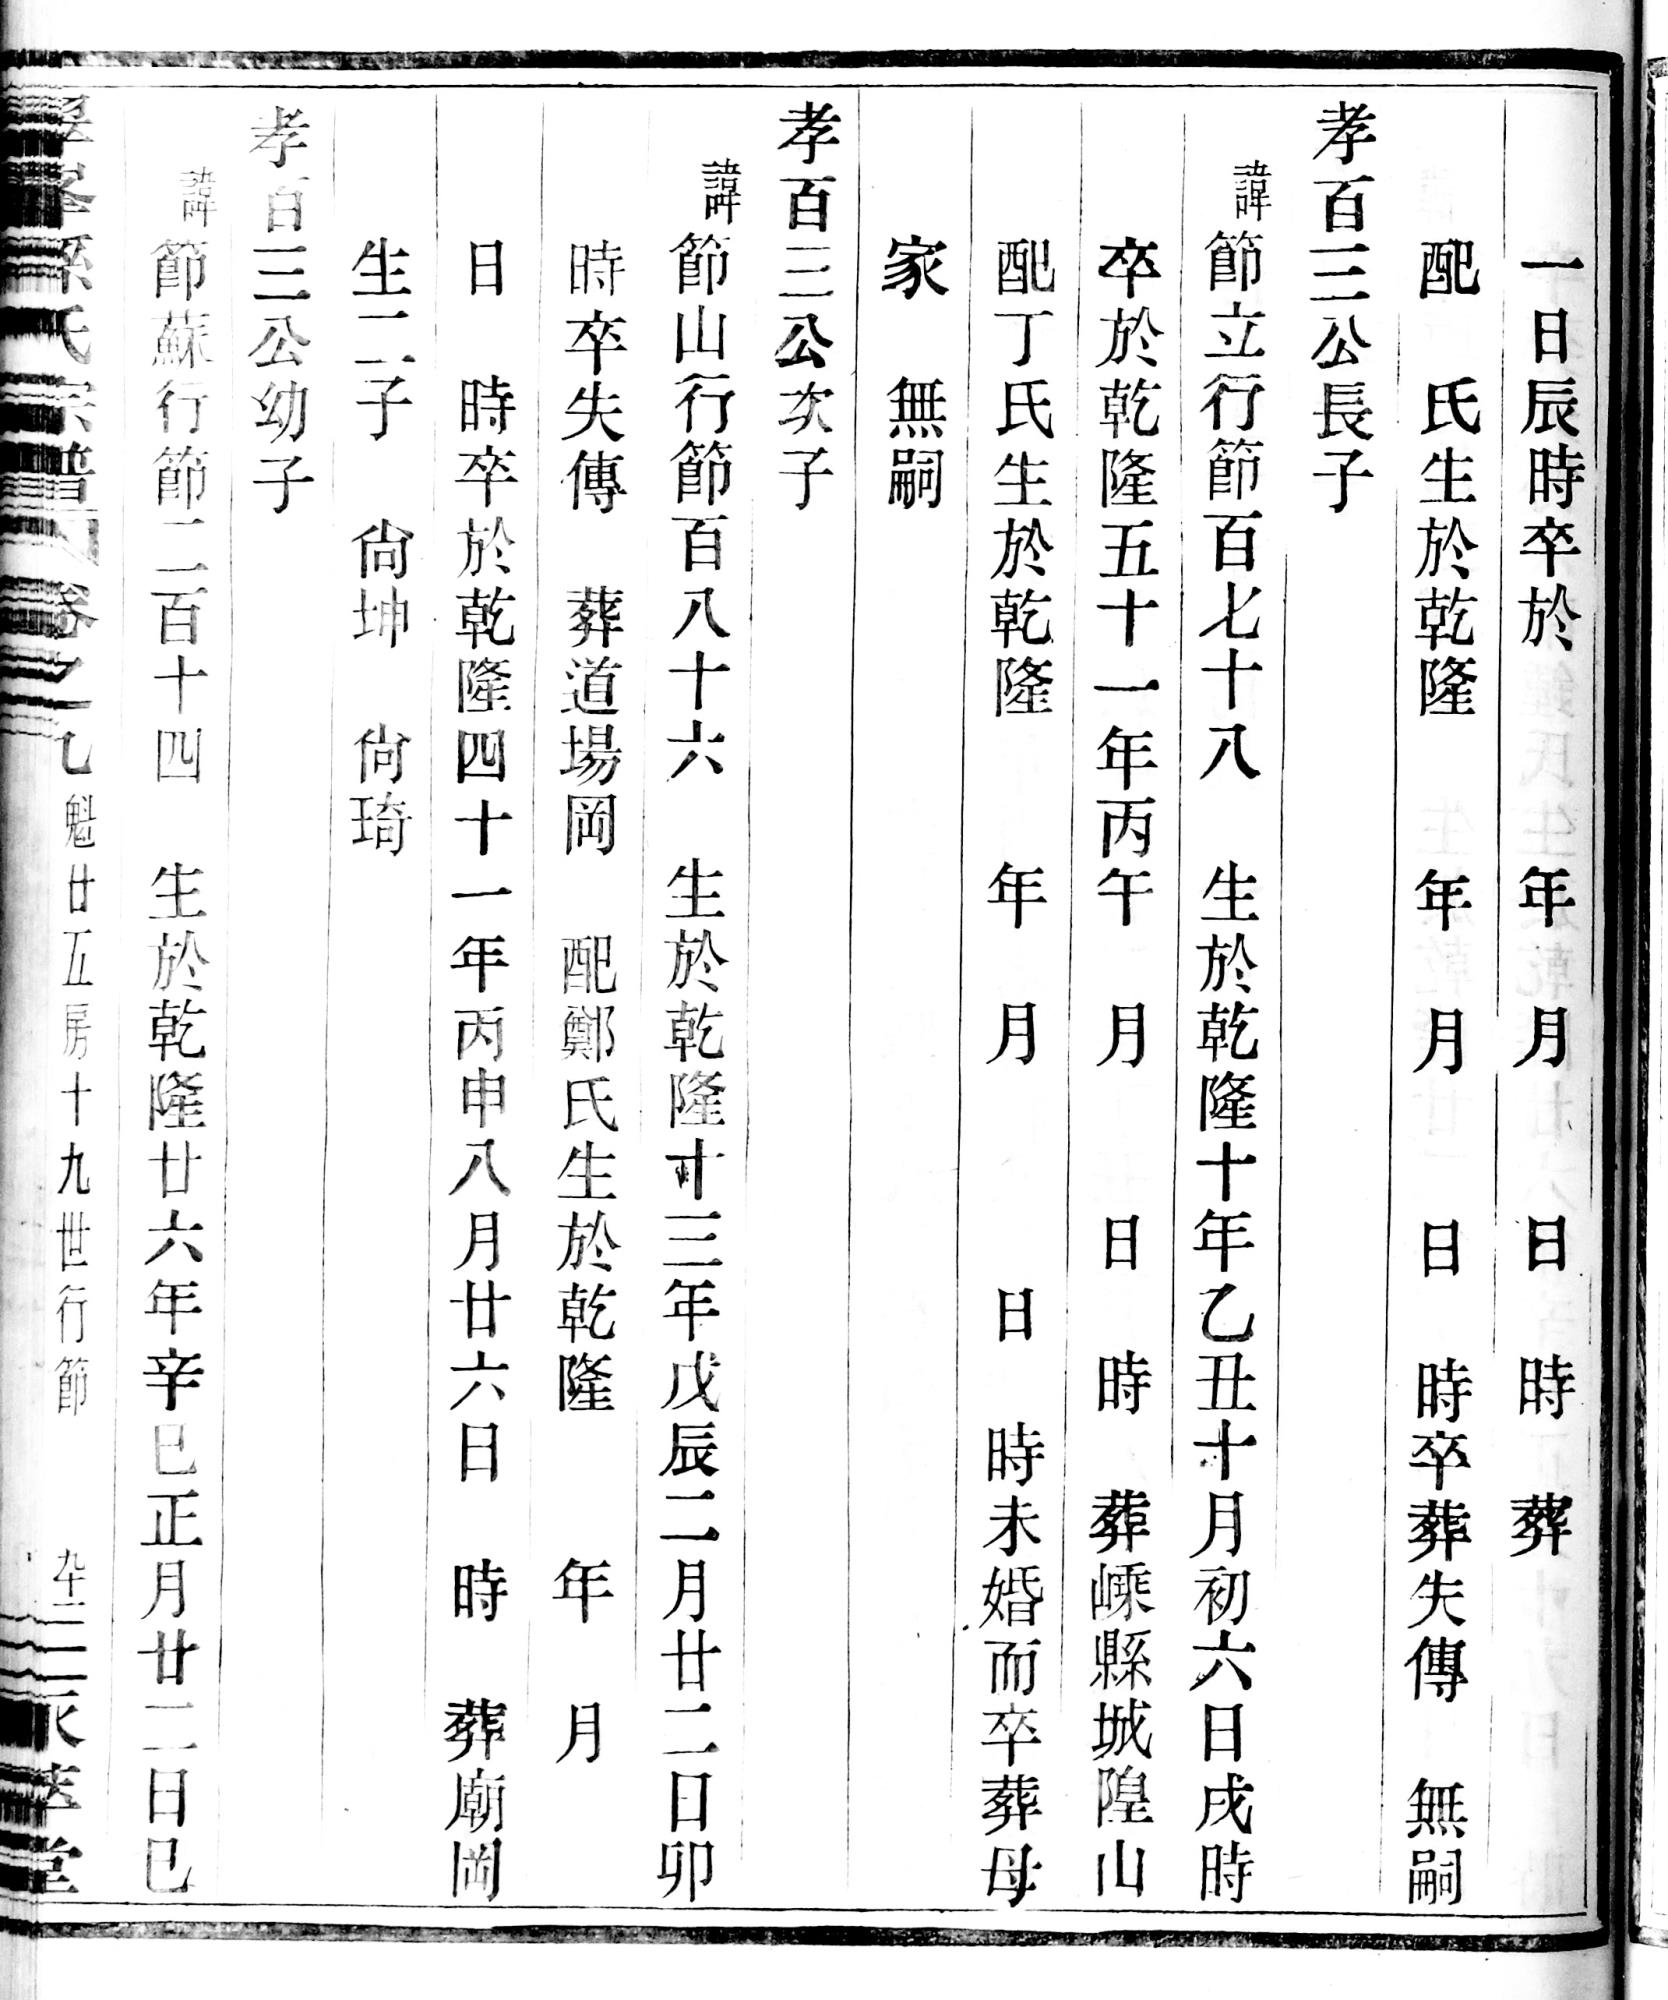 一日辰時卒於　年　月　日　時　葬
配　氏生於乾隆　年　月　日　時卒葬失傳　無嗣
孝百三公長子
諱節立行節百七十八　生於乾隆十年乙丑十月初六日戌時
卒於乾隆五十一年丙午　月　日　時　葬嵊縣城隍山
配丁氏生於乾隆　年　月　日　時未婚而卒葬母
家　無嗣
孝百三公次子
諱節山行節百八十六　生於乾隆十三年戊辰二月廿二日卯
時卒失傳　葬道場岡　配鄭氏生於乾隆　年　月
日　時卒於乾隆四十一年丙申八月廿六日　時　葬廟岡
生二子　尙坤　尙琦
孝百三公幼子
諱節蘇行節二百十四　生於乾隆廿六年辛巳正月廿二日巳
孫氏宗譜　卷之一乙　魁廿五房十九世行節　堂